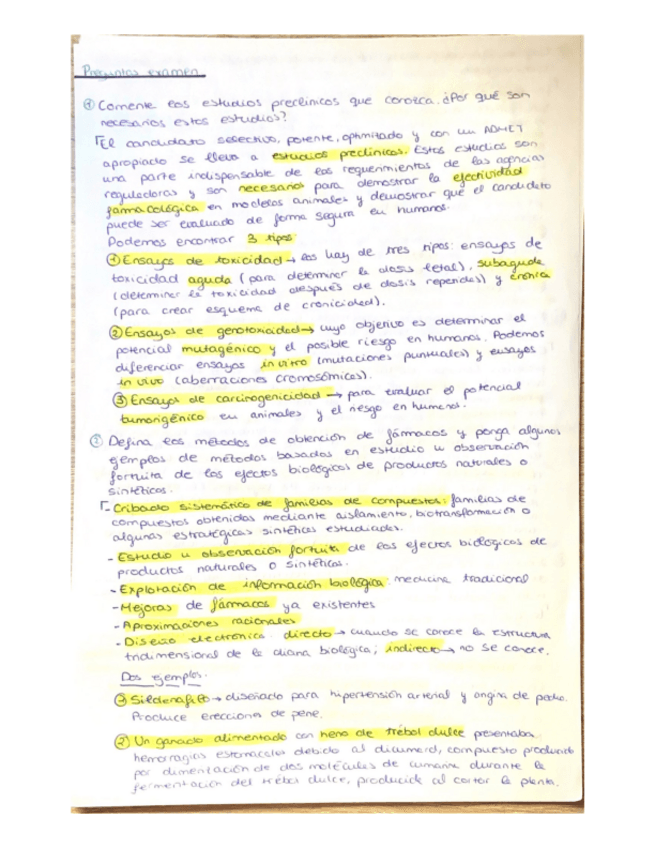 Preguntas examen
① Comente los estudios preclínicos que conozca. ¿Por qué son
necesarios estos estudios?
El candidato selectivo, potente, optimizado y con un ADMET
apropiado se lleva a estudios preclínicos. Estos estudios son
una parte indispensable de los requerimientos de las agencias
reguladoras y son necesarios para demostrar la efectividad
farmacológica en modelos animales y demostrar que el candidato
puede ser evaluado de forma segura en humanos.
Podemos encontrar 3 tipos
① Ensayos de toxicidad → los hay de tres tipos: ensayos de
toxicidad aguda (para determinar la dosis letal), subaguda
(determinar la toxicidad después de dosis repetidas) y crónica
(para crear esquema de cronicidad).
② Ensayos de genotoxicidad → cuyo objetivo es determinar el
potencial mutagénico y el posible riesgo en humanos. Podemos
diferenciar ensayos in vitro (mutaciones puntuales) y ensayos
in vivo (aberraciones cromosómicas).
③ Ensayos de carcinogenicidad → para evaluar el potencial
tumorigénico en animales y el riesgo en humanos.
② Defina los métodos de obtención de fármacos y ponga algunos
ejemplos de métodos basados en estudio u observación
fortuita de los efectos biológicos de productos naturales o
sintéticos.
- Cribado sistemático de familias de compuestos: familias de
compuestos obtenidos mediante aislamiento, biotransformación o
algunas estratégicas sintéticas estudiadas.
- Estudio u observación fortuita de los efectos biológicos de
productos naturales o sintéticos.
- Explotación de información biológica: medicina tradicional
- Mejoras de fármacos ya existentes
- Aproximaciones racionales
- Diseño electrónico: directo → cuando se conoce la estructura
tridimensional de la diana biológica; indirecto → no se conoce.
Dos ejemplos.
① Sildenafilo → diseñado para hipertensión arterial y angina de pecho.
Produce erecciones de pene.
② Un ganado alimentado con heno de trébol dulce presentaba
hemorragias estomacales debido al dicumerol, compuesto producido
por dimerización de dos moléculas de cumarina durante la
fermentación del trébol dulce, producida al cortar la planta.